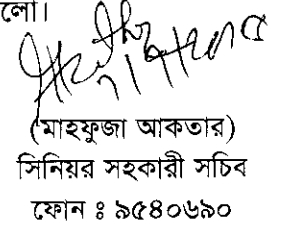 লো।
(মাহফুজা আকতার)
সিনিয়র সহকারী সচিব
ফোন ঃ ৯৫৪০৬৯০